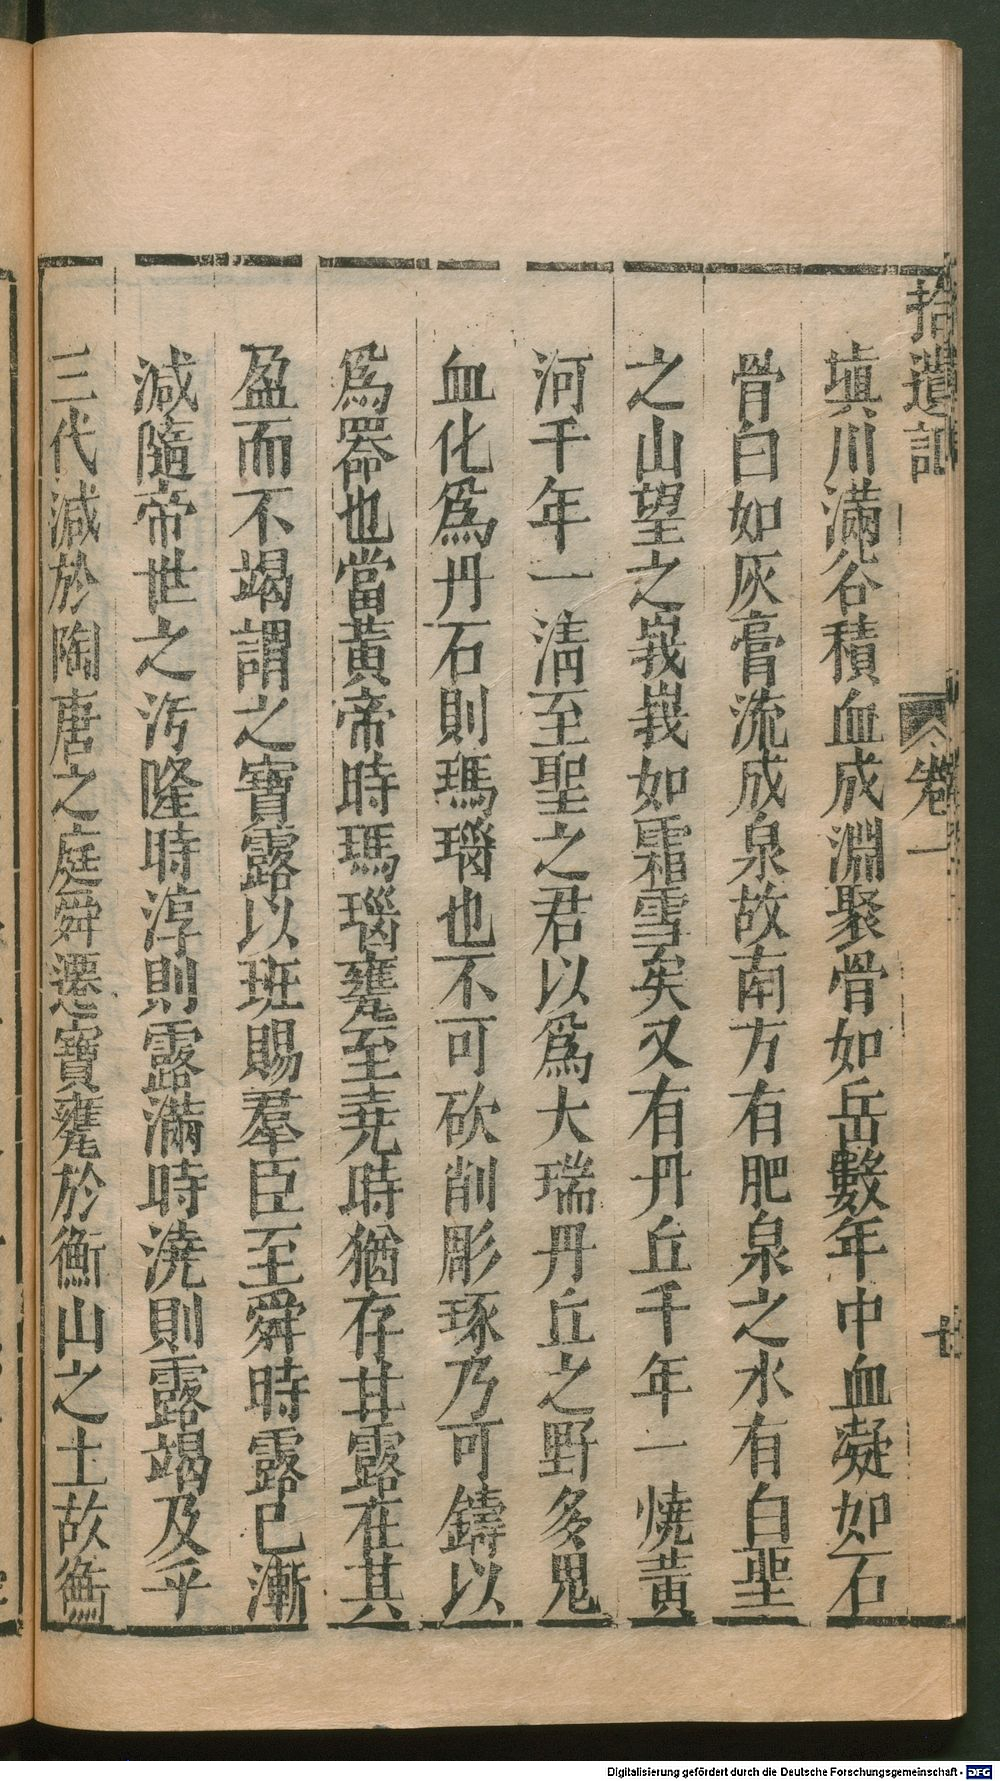 拾遺記
卷一
七
填川滿谷積血成淵聚骨如岳數年中血凝如石
骨白如灰膏流成泉故南方有肥泉之水有白堊
之山望之峩峩如霜雪矣又有丹丘千年一燒黃
河千年一清至聖之君以爲大瑞丹丘之野多鬼
血化爲丹石則瑪瑙也不可砍削彫琢乃可鑄以
爲器也當黃帝時瑪瑙甕至堯時猶存甘露在其
盈而不竭謂之寶露以班賜羣臣至舜時露已漸
減隨帝世之汚隆時淳則露滿時澆則露竭及乎
三代減於陶唐之庭舜遷寶甕於衡山之上故衡
Digitalisierung gefördert durch die Deutsche Forschungsgemeinschaft - DFG